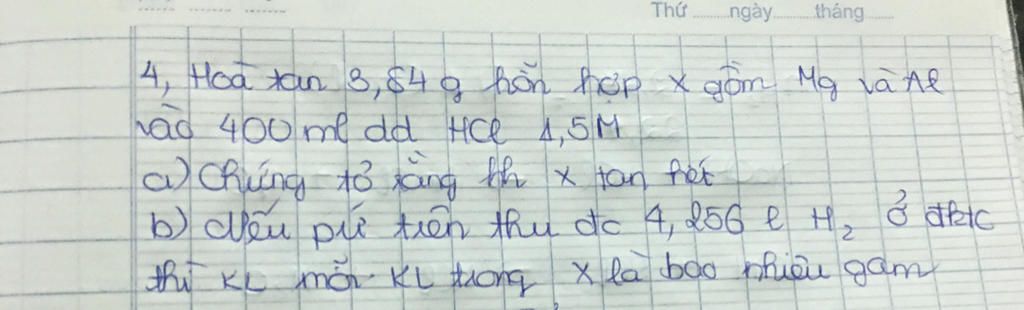 Thứ ........ngày........tháng......
4, Hoà tan 3,84 g hỗn hợp X gồm Mg và Al
vào 400 ml dd HCl 1,5M
a) Chứng tỏ rằng hh X tan hết
b) Nếu pứ trên thu đc 4,256 l H₂ ở đktc
thì KL mỗi KL trong X là bao nhiêu gam